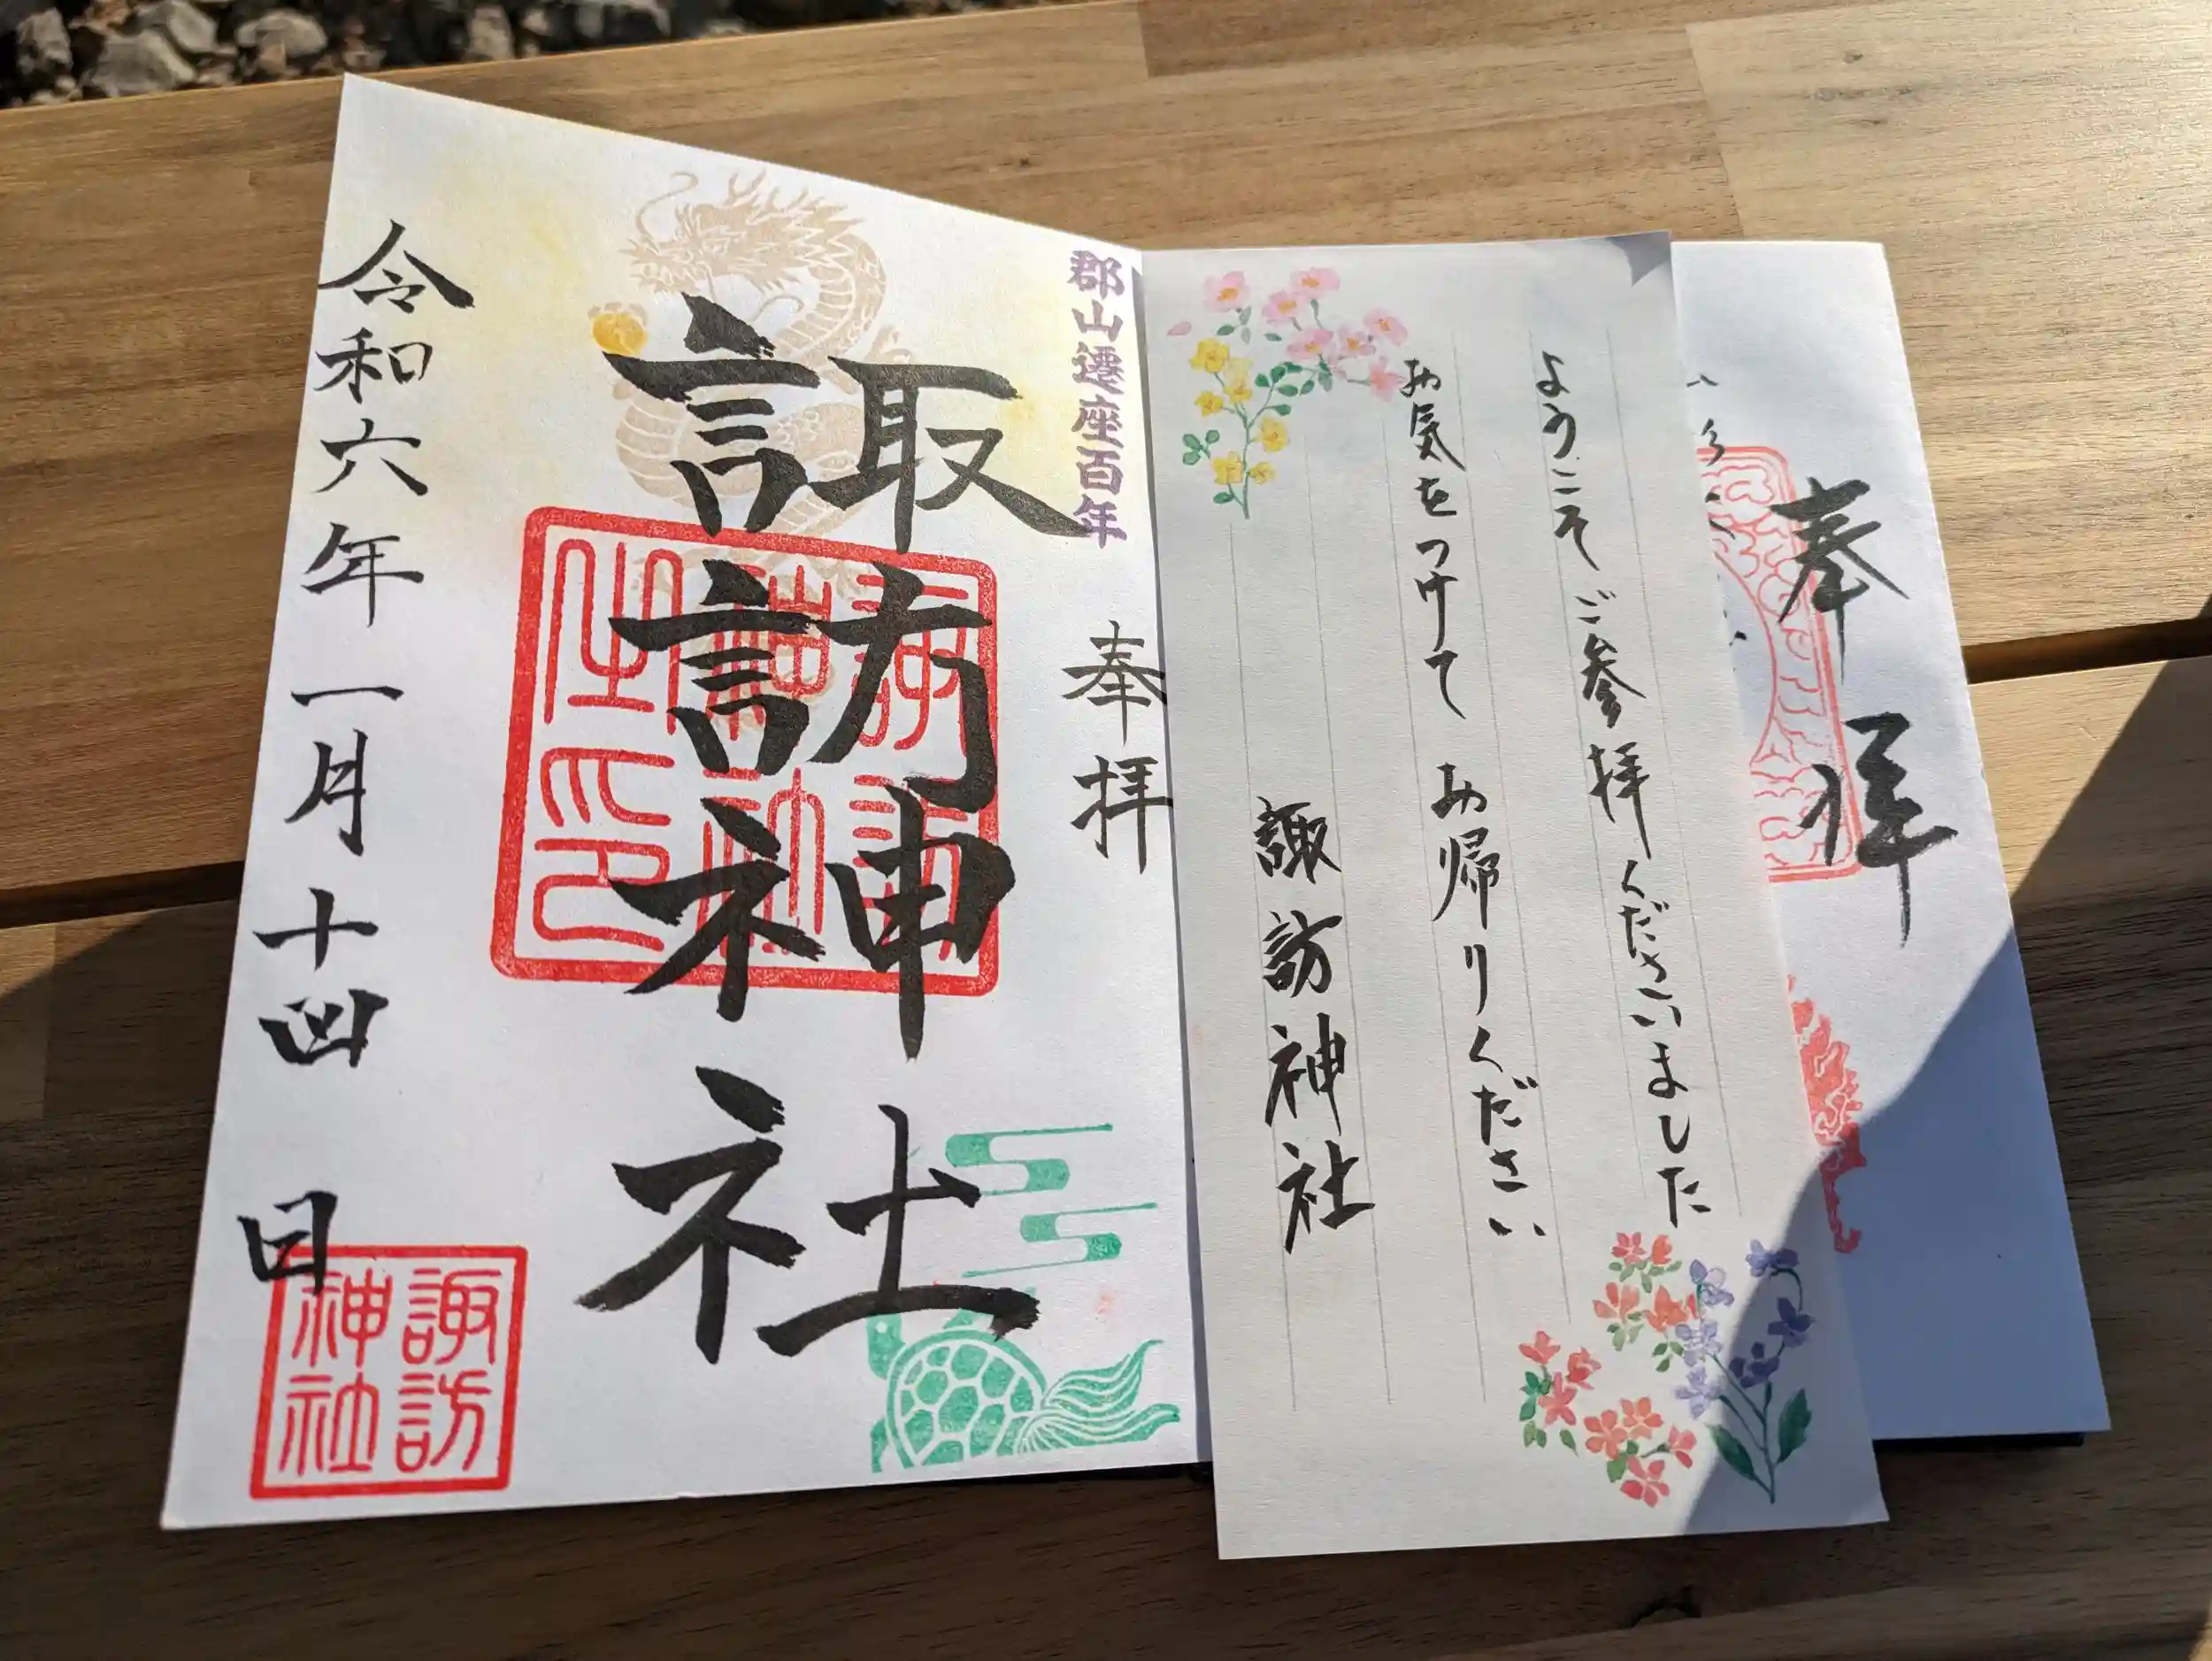 奉拝
ようこそご参拝くださいました
お気をつけてお帰りください
諏訪神社
郡山遷座百年
奉拝
諏訪神社
令和六年一月十四日
諏訪
神社